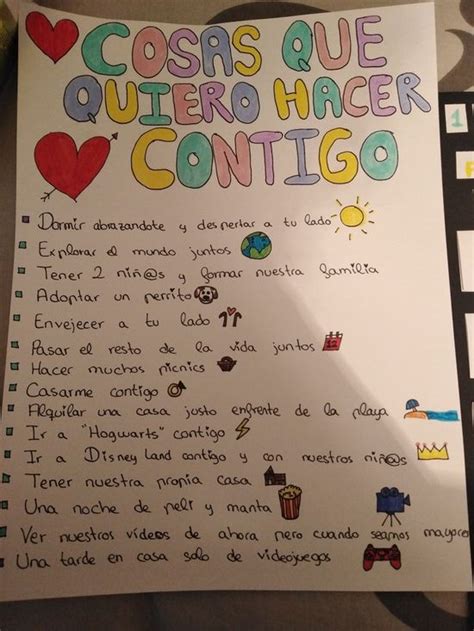 COSAS QUE
QUIERO HACER
CONTIGO
Dormir abrazandote y despertar a tu lado
Explorar el mundo juntos
Tener 2 niñ@s y formar nuestra familia
Adoptar un perrito
Envejecer a tu lado
Pasar el resto de la vida juntos
Hacer muchos picnics
Casarme contigo
Alquilar una casa justo enfrente de la playa
Ir a "Hogwarts" contigo
Ir a Disney Land contigo y con nuestros niñ@s
Tener nuestra propia casa
Una noche de peli y manta
Ver nuestros vídeos de ahora pero cuando seamos mayores
Una tarde en casa solo de videojuegos
1